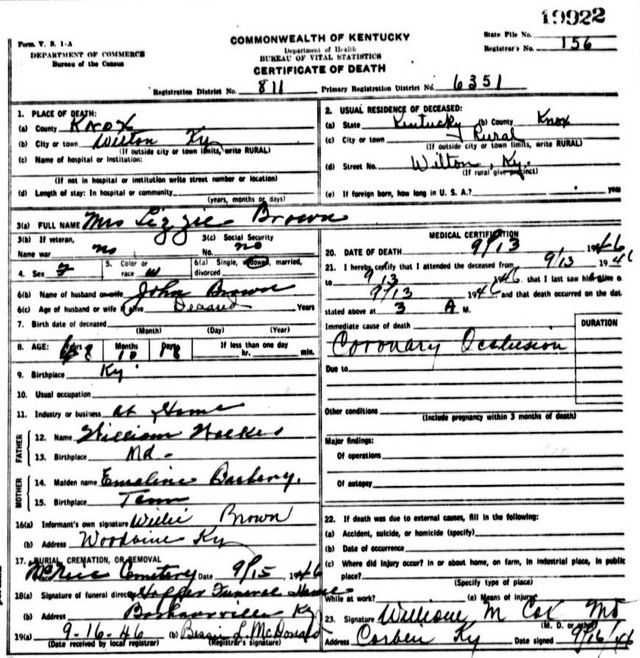 19922
Form. V. S. 1-A
DEPARTMENT OF COMMERCE
Bureau of the Census
COMMONWEALTH OF KENTUCKY
Department of Health
BUREAU OF VITAL STATISTICS
CERTIFICATE OF DEATH
State File No.
Registrar's No. 156
Registration District No. 811 Primary Registration District No. 6351
1. PLACE OF DEATH:
(a) County Knox
(b) City or town Wilton Ky
(If outside city or town limits, write RURAL)
(c) Name of hospital or institution:
(If not in hospital or institution write street number or location)
(d) Length of stay: In hospital or community
(years, months or days)
2. USUAL RESIDENCE OF DECEASED:
(a) State Kentucky (b) County Knox
(c) City or town Rural
(If outside city or town limits, write RURAL)
(d) Street No. Wilton, Ky.
(If rural give precinct)
(e) If foreign born, how long in U. S. A.?
3(a) FULL NAME Mrs Lizzie Brown
3(b) If veteran,
Name war no
3(c) Social Security
No. no
4. Sex
5. Color or
race w
6(a) Single, widowed, married,
divorced
6(b) Name of husband or wife John Brown
6(c) Age of husband or wife if alive Years
7. Birth date of deceased
(Month) (Day) (Year)
8. AGE: Years Months Days If less than one day
10 hr. min.
9. Birthplace Ky.
10. Usual occupation
11. Industry or business at Home
FATHER
12. Name William
13. Birthplace Md-
MOTHER
14. Maiden name Emeline
15. Birthplace Tenn
16(a) Informant's own signature Willie Brown
(b) Address Woodbine Ky
17. BURIAL, CREMATION, OR REMOVAL
Cemetery Date 9/15 1946
18(a) Signature of funeral director Funeral Home
(b) Address Barbourville Ky
19(a) 9-16-46 (b) Bessie L. McDonald
(Date received by local registrar) (Registrar's signature)
MEDICAL CERTIFICATION
20. DATE OF DEATH 9/13 1946
21. I hereby certify that I attended the deceased from 9/13 1946
to 9/13 1946 that I last saw him alive on
9/13 1946 and that death occurred on the date
stated above at 3 A M.
Immediate cause of death DURATION
Coronary Occlusion
Due to
Other conditions
(Include pregnancy within 3 months of death)
Major findings:
Of operations
Of autopsy
22. If death was due to external causes, fill in the following:
(a) Accident, suicide, or homicide (specify)
(b) Date of occurrence
(c) Where did injury occur? In or about home, on farm, in industrial place, in public
place?
(Specify type of place)
While at work? (e) Means of injury
23. Signature M Cox MD
(M. D. or other)
Address Corbin Ky Date signed 9/16/46